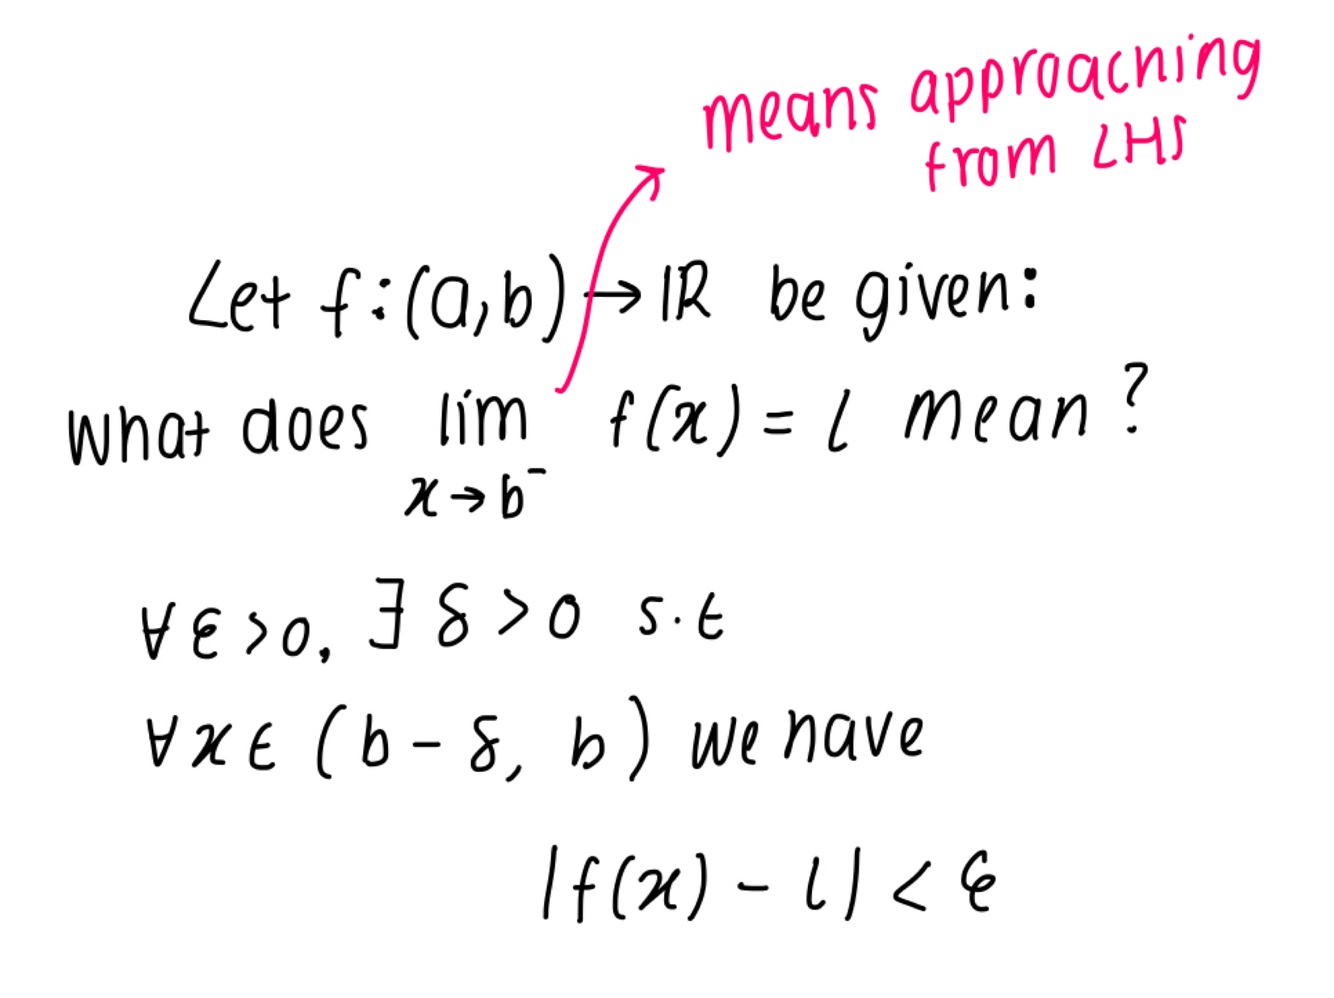 means approaching
from LHS
Let f:(a,b) → ℝ be given:
what does lim f(x) = l mean?
x→b⁻
∀ε>0, ∃ δ>0 s.t
∀x∈ (b-δ, b) we have
|f(x) - l| < ε